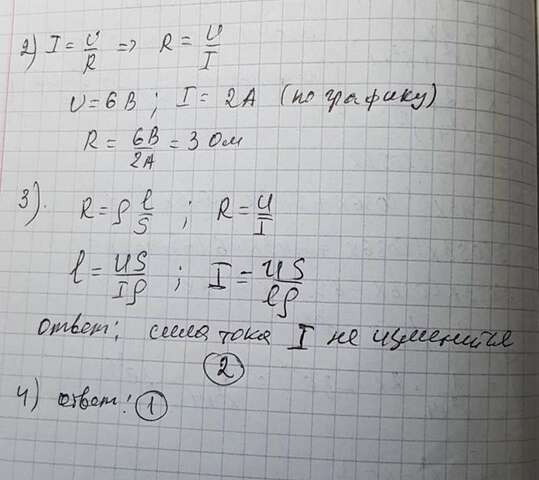 2) I = U/R => R = U/I
U = 6В ; I = 2А (по графику)
R = 6В/2А = 3 Ом
3). R = ρ l/S ; R = U/I
l = US/Iρ ; I = US/lρ
Ответ: сила тока I не изменится
2
4) ответ: 1